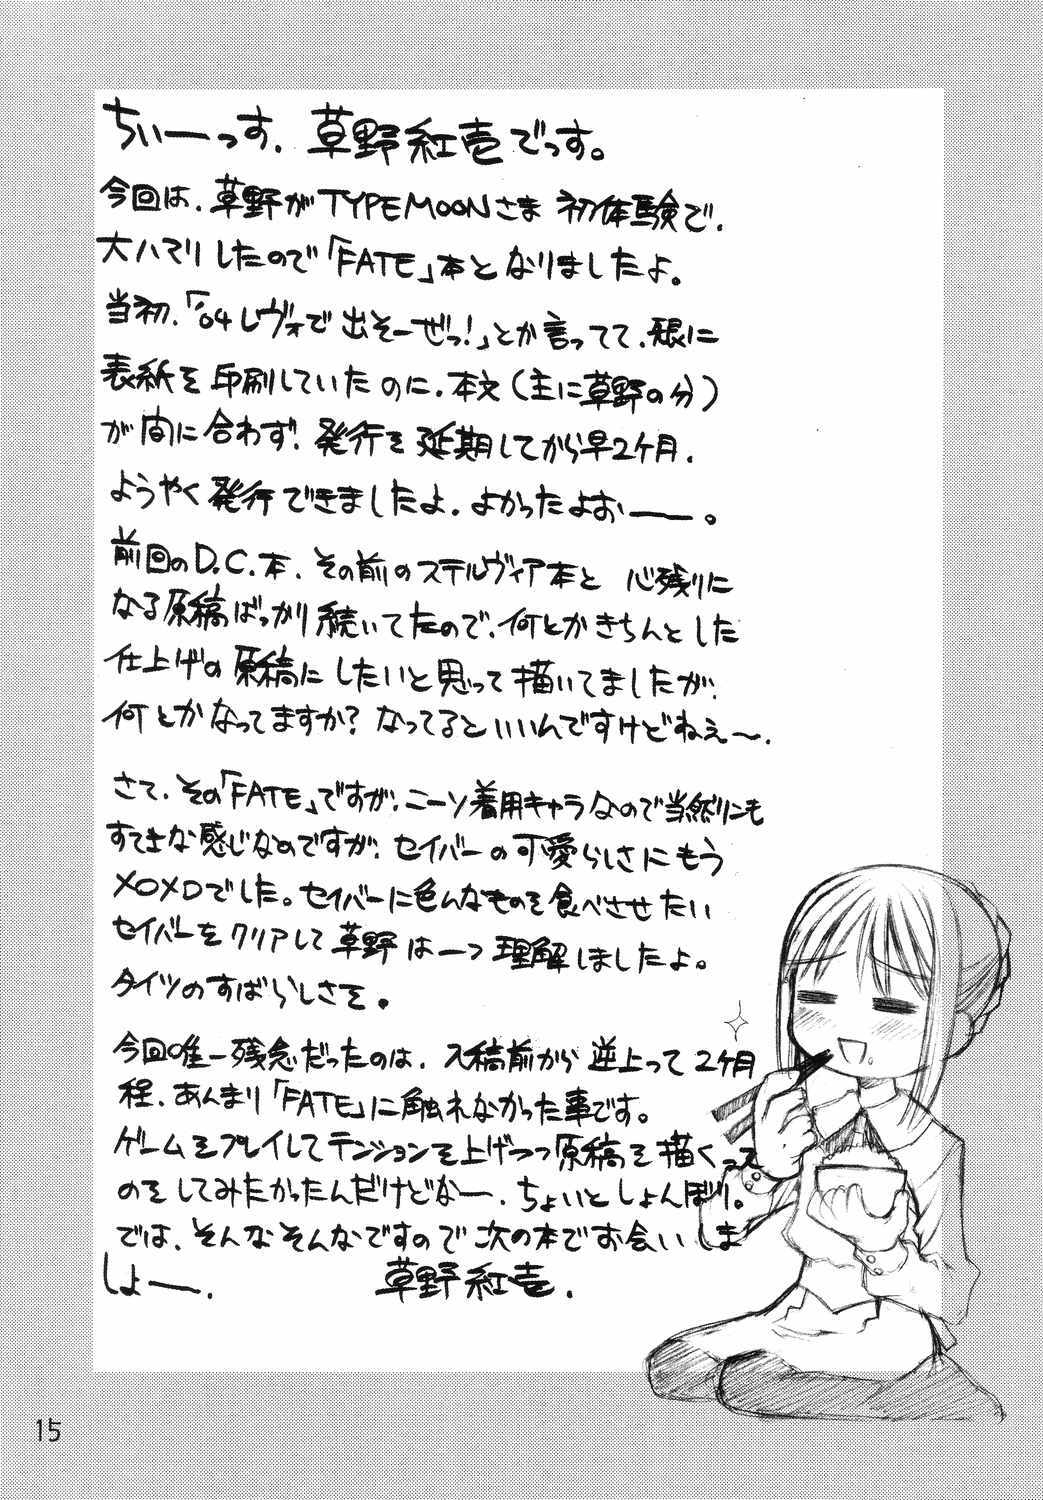 ちぃーっす、草野紅壱でっす。
今回は、草野がTYPEMOONさま 初体験で、
大ハマリしたので「FATE」本となりましたよ。
当初、「'04レヴォで出そーぜっ!」とか言ってて、既に
表紙を印刷していたのに、本文(主に草野の分)
が間に合わず、発行を延期してから早2ケ月、
ようやく発行できましたよ、よかったよおー。
前回のD.C.本、その前のステルヴィア本と 心残りに
なる原稿ばっかり続いてたので、何とかきちんとした
仕上げの原稿にしたいと思って描いてましたが、
何とかなってますか?なってるといいんですけどねぇ〜、
さて、その「FATE」ですが、ニーソ着用キャラなので当然リンも
すてきな感じなのですが、セイバーの可愛らしさにもう
XOXDでした。セイバーに色んなものを食べさせたい
セイバーをクリアして草野は一つ理解しましたよ。
タイツのすばらしさを。
今回唯一残念だったのは、入稿前から逆上って2ケ月
程、あんまり「FATE」に触れなかった事です。
ゲームをプレイしてテンションを上げつつ原稿を描くって
のをしてみたかったんだけどなー、ちょいとしょんぼり。
では、そんなそんなですので次の本でお会いしま
しょー、 草野紅壱、
15